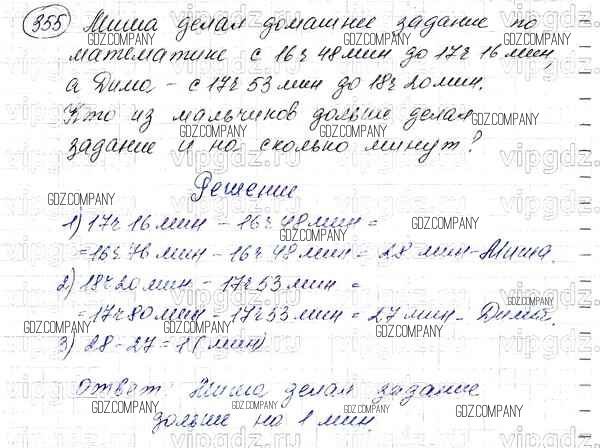 355 Миша делал домашнее задание по
математике с 16ч 48мин до 17ч 16мин,
а Дима - с 17ч 53 мин до 18ч 20мин.
Кто из мальчиков дольше делал
задание и на сколько минут?
Решение
1) 17ч 16мин - 16ч 48мин =
= 16ч 76мин - 16ч 48мин = 28 мин - Миша.
2) 18ч 20мин - 17ч 53мин =
= 17ч 80мин - 17ч 53мин = 27мин - Дима.
3) 28 - 27 = 1 (мин)
Ответ: Миша делал задание
дольше на 1 мин.